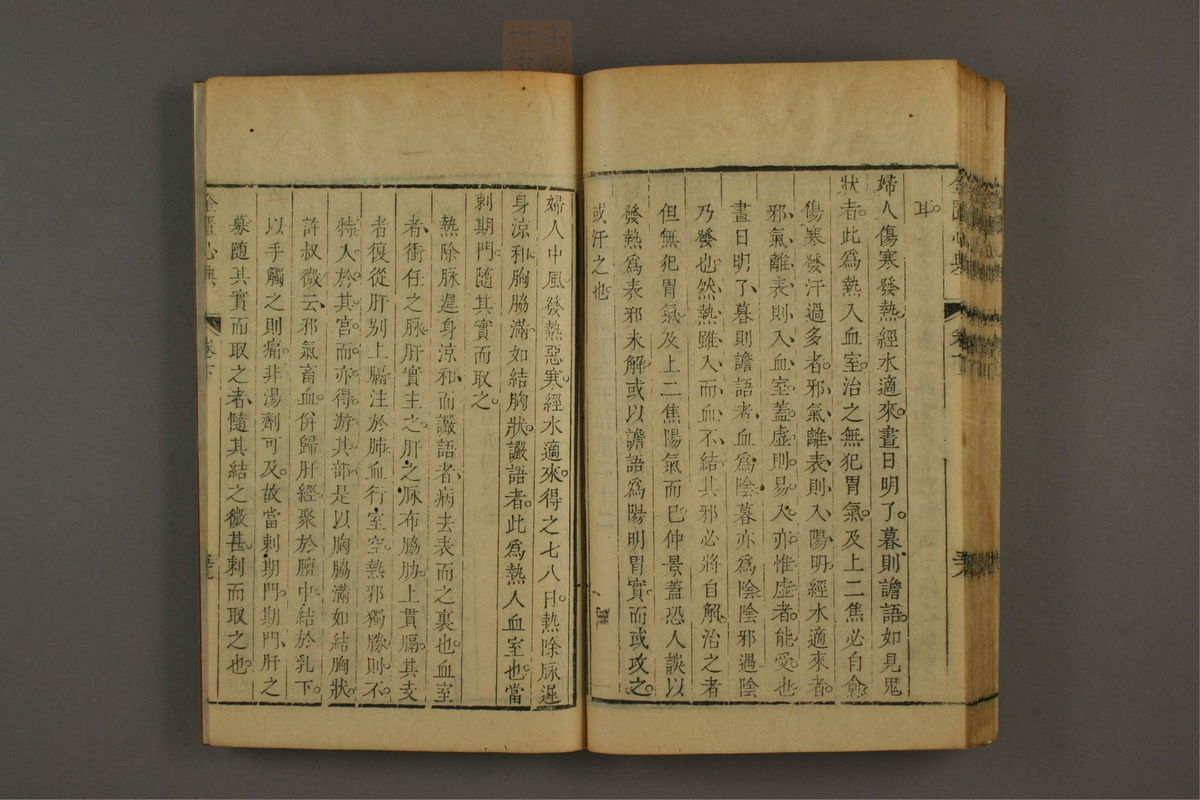 耳
婦人傷寒發熱經水適來晝日明了暮則譫語如見鬼
狀者此為熱入血室治之無犯胃氣及上二焦必自愈
傷寒發汗過多者邪氣離表則入陽明經水適來者
邪氣離表則入血室蓋虛則易入亦惟虛者能受也
晝日明了暮則譫語者血為陰暮亦為陰陰邪遇陰
乃發也然熱雖入而血不結其邪必將自解治之者
但無犯胃氣及上二焦陽氣而已仲景蓋恐人誤以
發熱為表邪未解或以譫語為陽明胃實而或攻之
或汗之也
婦人中風發熱惡寒經水適來得之七八日熱除脉遲
身涼和胸脇滿如結胸狀讝語者此為熱入血室也當
刺期門隨其實而取之
熱除脉遲身涼和而讝語者病去表而之裏也血室
者衝任之脉肝實主之肝之脉布脇肋上貫膈其支
者復從肝別上膈注於肺血行室空熱邪獨勝則不
特入於其宮而亦得游其部是以胸脇滿如結胸狀
許叔微云邪氣畜血併歸肝經聚於膻中結於乳下
以手觸之則痛非湯劑可及故當刺期門期門肝之
募隨其實而取之者隨其結之微甚刺而取之也
金匱心典
卷下